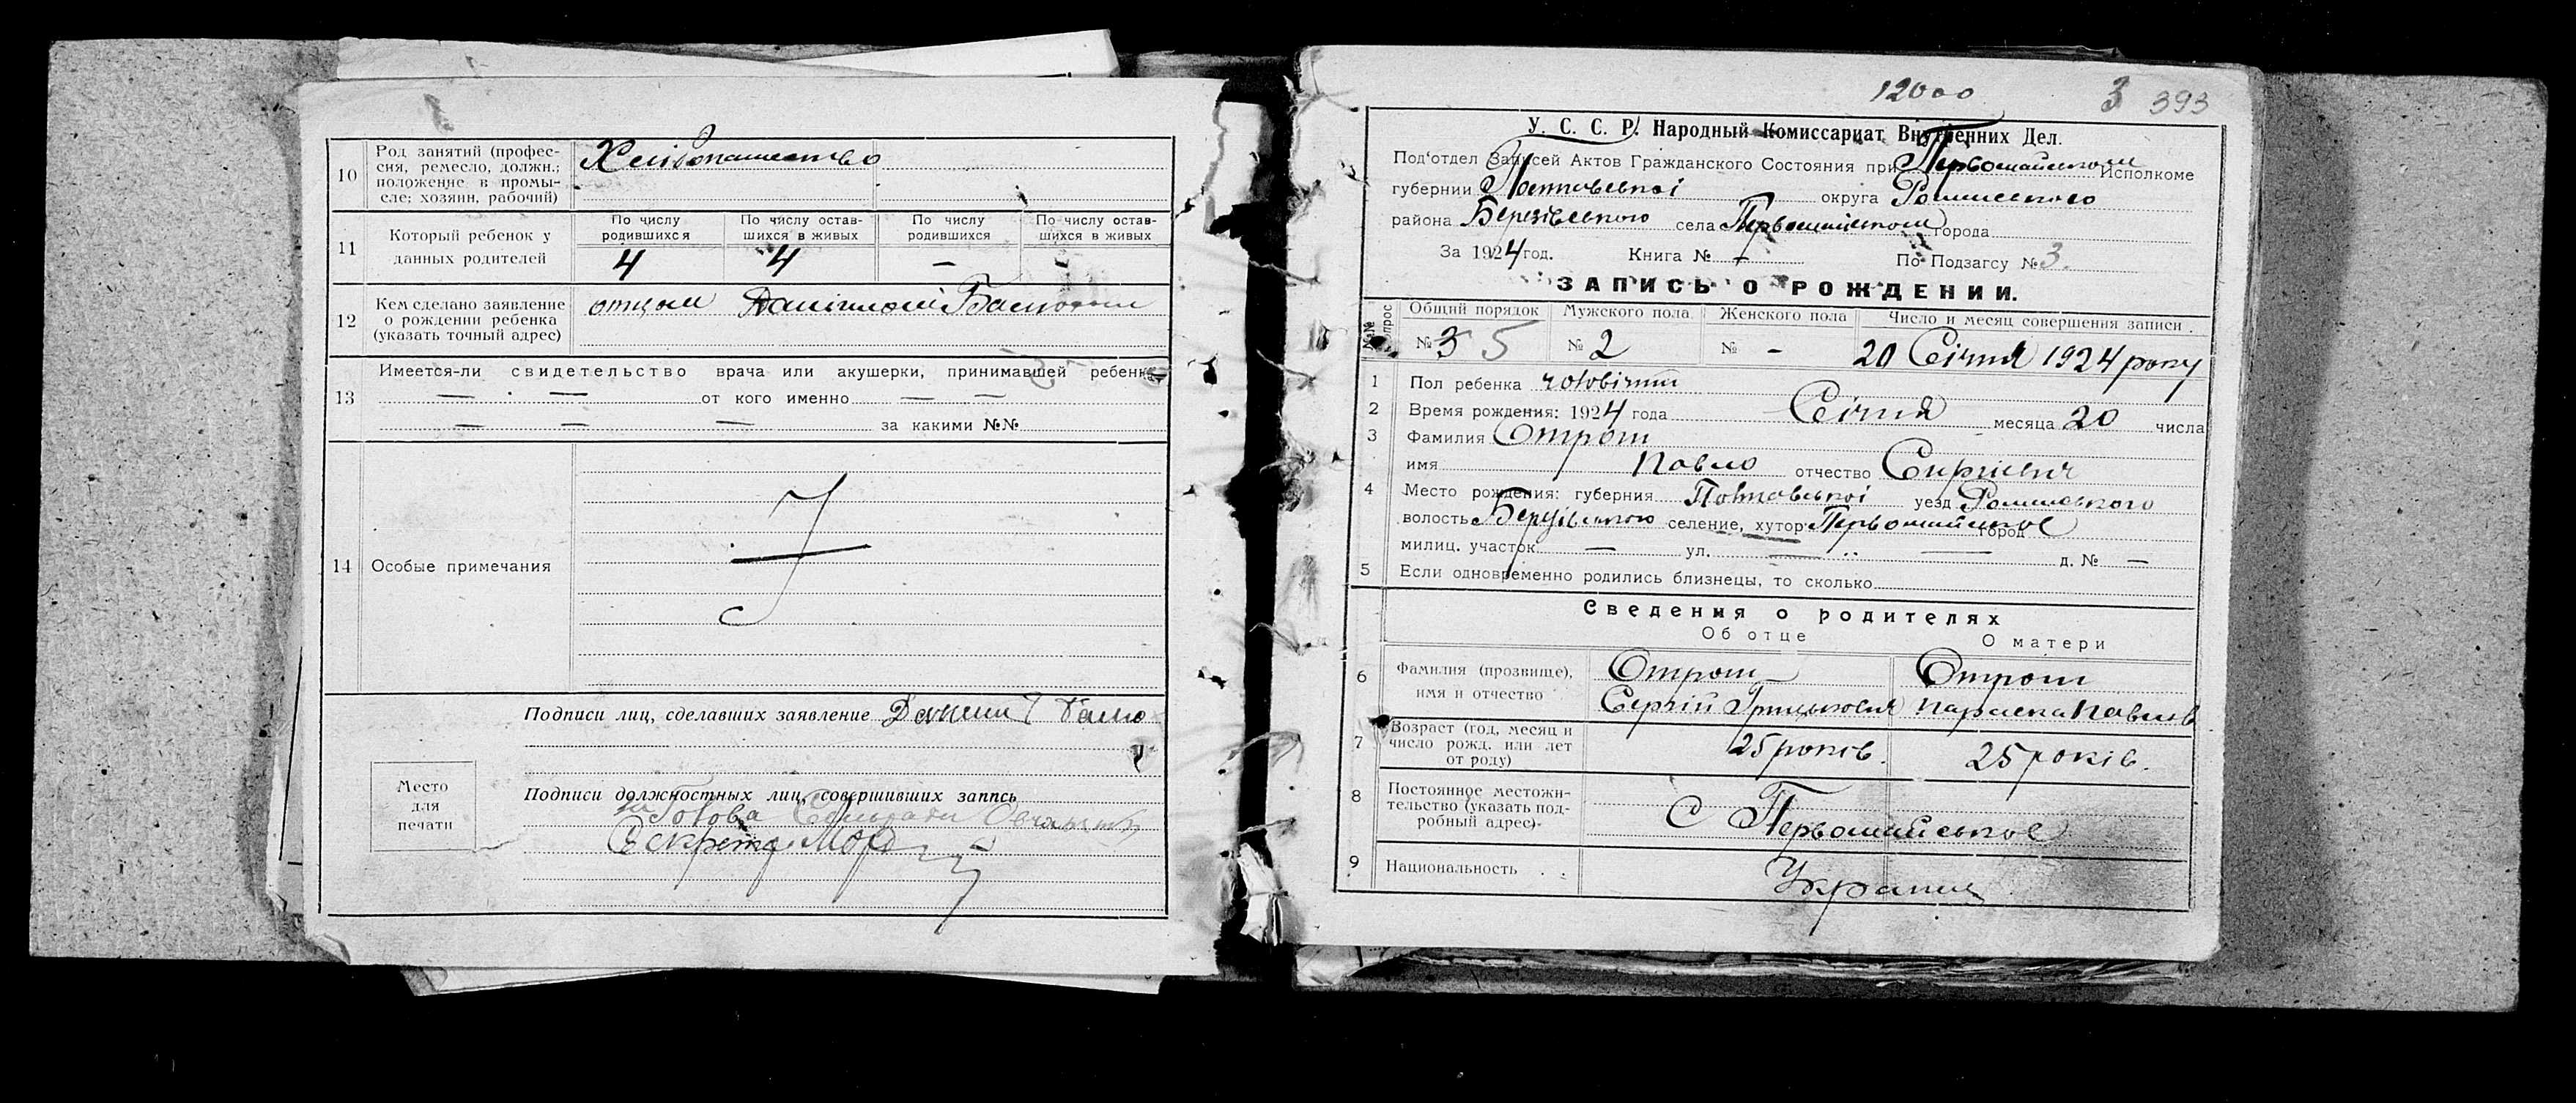 10 Род занятий (профес-
сия, ремесло, должн.;
положение в промы-
сле; хозяин, рабочий)
Хлібопашество
11 Который ребенок у
данных родителей
По числу
родившихся
По числу остав-
шихся в живых
По числу
родившихся
По числу остав-
шихся в живых
4 4 — —
12 Кем сделано заявление
о рождении ребенка
(указать точный адрес)
отцом
13 Имеется-ли свидетельство врача или акушерки, принимавшей ребенка
— — от кого именно — —
— — — за какими №№
14 Особые примечания
Подписи лиц, сделавших заявление
Место
для
печати
Подписи должностных лиц, совершивших запись
за Голова Сельради
Секретар
12000 3 393
У. С. С. Р. Народный Комиссариат Внутренних Дел.
Под'отдел Записей Актов Гражданского Состояния при Первомайськом Исполкоме
губернии Полтавської округа Роменского
района Березівського села Первомайськом города
За 1924 год. Книга № — По Подзагсу № 3.
ЗАПИСЬ О РОЖДЕНИИ.
№№ вопрос
Общий порядок Мужского пола Женского пола Число и месяц совершения записи.
№ 3 5 № 2 № - 20 Січня 1924 року
1 Пол ребенка чоловічий
2 Время рождения: 1924 года Січня месяца 20 числа
3 Фамилия Отрош
имя Павло отчество Сиргієвич
4 Место рождения: губерния Полтавської уезд Роменського
волость Березівського селение, хутор Первомайськое город
милиц. участок — ул. — — д. № —
5 Если одновременно родились близнецы, то сколько
Сведения о родителях
Об отце О матери
6 Фамилия (прозвище),
имя и отчество
Отрош Отрош
Сергій Параска Павлов
7 Возраст (год, месяц и
число рожд. или лет
от роду)
25 років. 25 років.
8 Постоянное местожи-
тельство (указать под-
робный адрес)
С Первомайськое
9 Национальность
Украинц